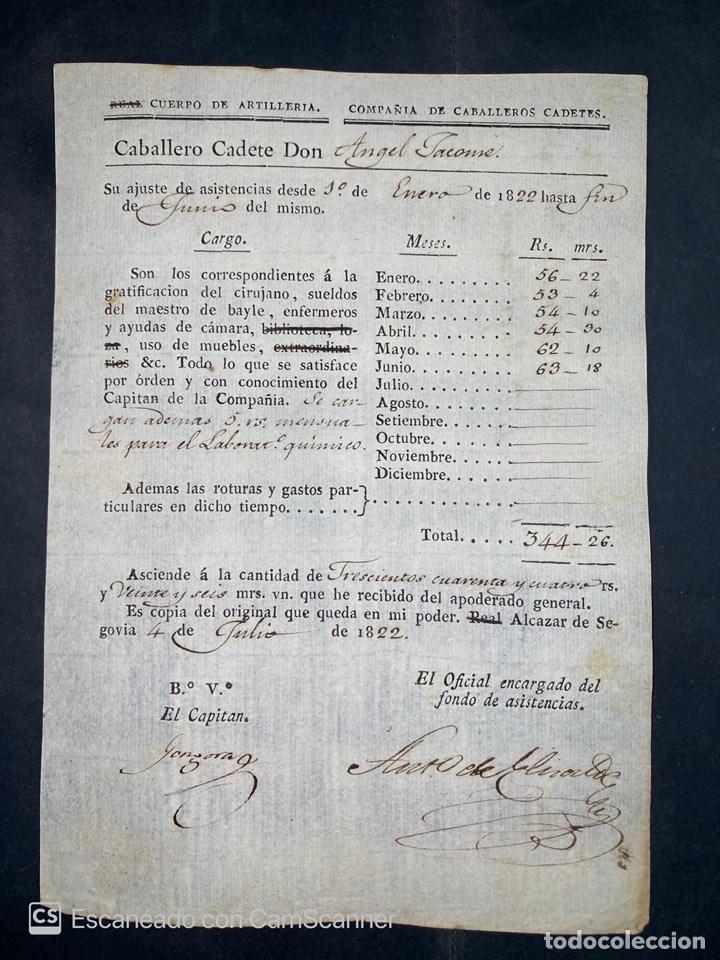 REAL CUERPO DE ARTILLERIA. COMPAÑIA DE CABALLEROS CADETES.
Caballero Cadete Don Angel Jacome.
Su ajuste de asistencias desde 1.º de Enero de 1822 hasta fin
de Junio del mismo.
Cargo. Meses. Rs. mrs.
Son los correspondientes á la
gratificacion del cirujano, sueldos
del maestro de bayle, enfermeros
y ayudas de cámara, biblioteca, lo-
za, uso de muebles, extraordina-
rios &c. Todo lo que se satisface
por órden y con conocimiento del
Capitan de la Compañía. Se car-
gan ademas 5. rs. mensua-
les para el Laborat.º químico.
Enero......... 56-22
Febrero........ 53-4
Marzo......... 54-10
Abril......... 54-30
Mayo......... 62-10
Junio......... 63-18
Julio.........
Agosto........
Setiembre......
Octubre.......
Noviembre.....
Diciembre.....
Ademas las roturas y gastos par-
ticulares en dicho tiempo.......}
Total..... 344-26.
Asciende á la cantidad de Trescientos cuarenta y cuatro rs.
y Veinte y seis mrs. vn. que he recibido del apoderado general.
Es copia del original que queda en mi poder. Real Alcazar de Se-
govia 4 de Julio de 1822.
B.º V.º
El Capitan.
Gongora
El Oficial encargado del
fondo de asistencias.
Ant.º de
CS Escaneado con CamScanner
todocoleccion